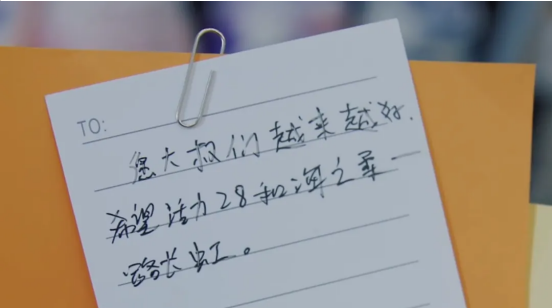 TO:
大叔们越来越好.
希望活力28和之柔一
路长虹。